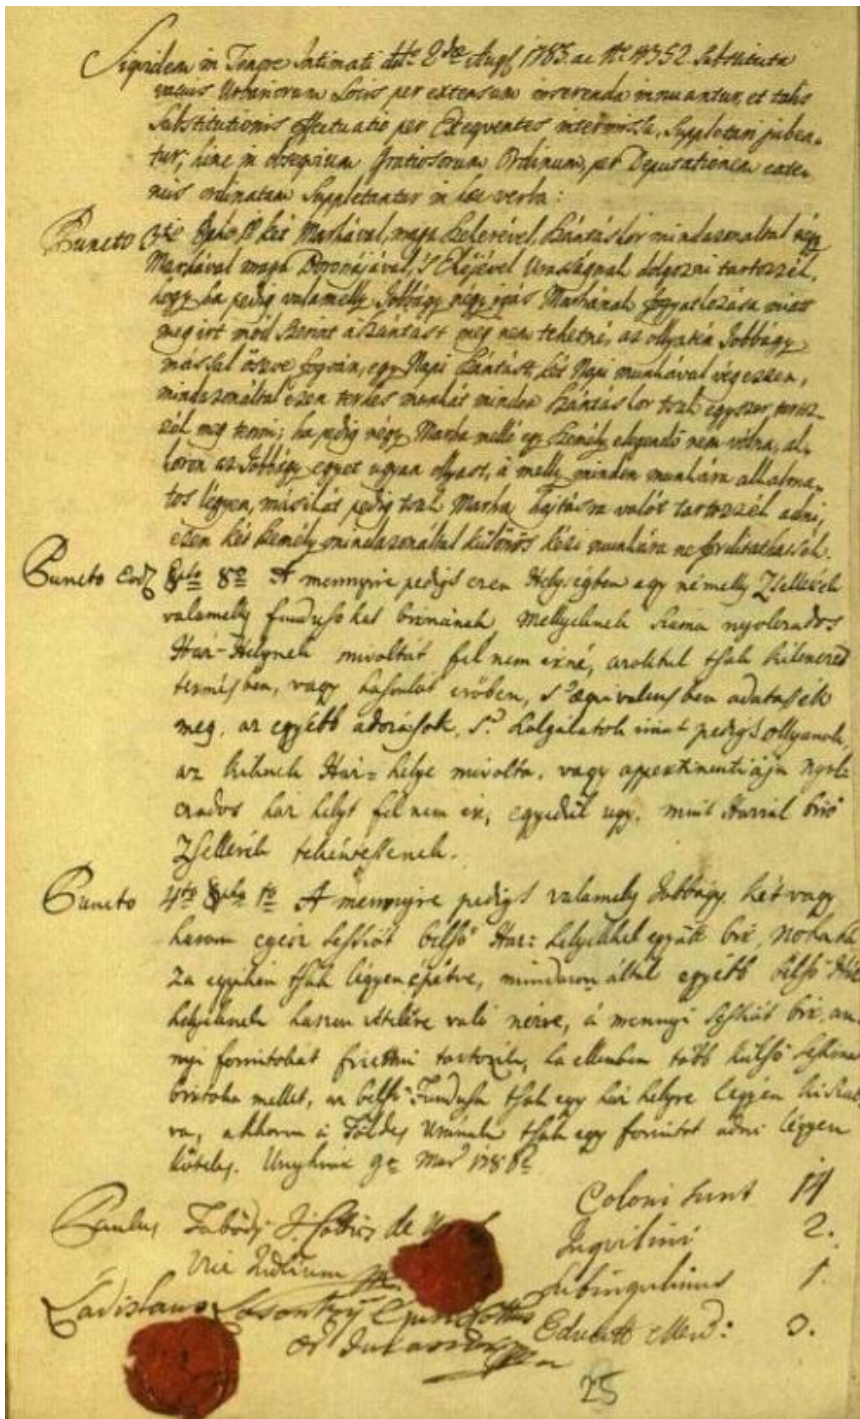 Siquidem in Tenore Intimati ddto 2dae Augusti 1783 ac No 4352 Substituta
vacuis Urbariorum Locis per extensum inserenda innuantur, et talis
Substitutionis effectuatio per Exequentes intermissa, Suppletari jubea-
tur; hinc in obsequium Gratiosorum Ordinum, per Deputationem eate-
nus ordinatam Suppleantur in hoc verba:
Puncto 3tio két Marhával, maga Szekerével, Szántáskor mindazonáltal négy
Marhával maga Boronájával, 's Ekéjével Uraságnak dolgozni tartozzék,
hogy ha pedig valamelly Jobbágy négy igás Marhának fogyatkozása miatt
meg irt mód szerint a Szántást meg nem tehetné, az ollyatén Jobbágy
mással öszve fogván, egy Napi Szántást, két Napi munkával végezzen,
mindazonáltal ezen terhes munkát minden Szántáskor tsak egyszer tartoz-
zék meg tenni; ha pedig négy Marha mellé egy Személy elegendő nem vólna, ak-
koron az Jobbágy egyet ugyan ollyast, a melly minden munkára alkalma-
tos légyen, másikát pedig tsak Marha hajtásra valót tartozzék adni,
ezen két Személy mindazonáltal különös kézi munkára ne fordítathassék.
Puncto eod 8o A mennyire pedigs ezen Helységben egy némelly Zsellérek
valamelly fundusokat birnának, mellyeknek száma nyolczados
Ház-Helynek mivoltát fel nem érné, azoktul tsak kilenczed
termésben, vagy hasonló erőben, s aequivalensben adatassék
meg, az egyébb adózások, s szolgálatok iránt pedigs ollyanok,
az kiknek Ház-helye mivolta, vagy appertinentiája nyol-
czados ház helyt fel nem ér, egyedül ugy, mint Házzal biró
Zsellérek tekéntessenek.
Puncto 4to 1o A mennyire pedigs valamely Jobbágy két vagy
harom egész sessiót belső Ház helyekkel együtt bir, noha há-
za egyiken tsak légyen építve, mindazon által egyébb belső Ház
helyeknek haszon vételére való nézve, a mennyi sessiót bir, an-
nyi forintokat fizettni tartozik, ha ellenben több külső sessiona
birtoka mellet, az belső Fundusa tsak egy ház helyre légyen
va, akkoron a Földes Urának tsak egy forintot adni légyen
köteles. 9a Mar 178
Coloni sunt 14
Paulus de
Inquilini 2.
Subinquilinus 1.
Ladislaus
0.
25